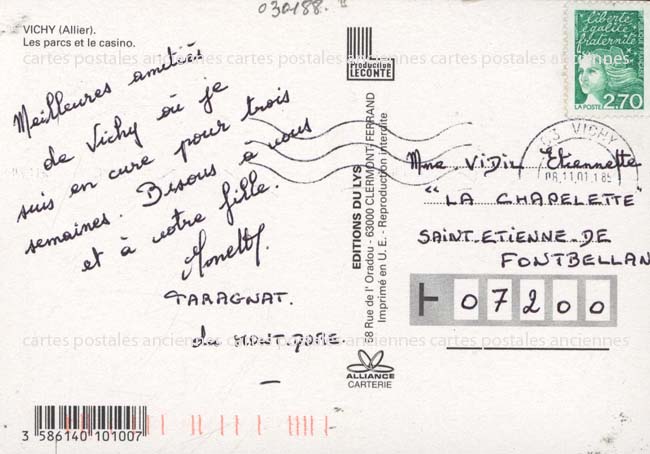 030188.
VICHY (Allier).
Les parcs et le casino.
cartes postales anciennes cartes postales anciennes
Meilleures amitiés
de Vichy où je
suis en cure pour trois
semaines. Bisous à vous
et à votre fille.
TARAGNAT.
Production
LECONTE
EDITIONS DU LYS
68 Rue de l' Oradou - 63000 CLERMONT-FERRAND
Imprimé en U. E. - Reproduction interdite
ALLIANCE
CARTERIE
liberté
égalité
fraternité
LA POSTE 2,70
VICHY
Mme Etiennette
"LA CHAPELETTE"
SAINT-ETIENNE-DE
FONTBELLAN
07200
cartes postales anciennes cartes postales anciennes
3 586140 101007